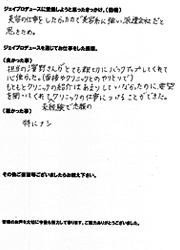 ジェイプロデュースに登録しようと思ったきっかけ、(動機)
美容の仕事がしたかったので美容系に強い派遣会社だと
思ったため。
ジェイプロデュースを通じてお仕事をした感想。
(良かった事)
担当の 野さんがとても親切にバックアップしてくれて
心強かった。(面接やクリニックとのやりとりで)
もともとクリニックの紹介はあまりしていなかったのに、希望
を聞いてくれてクリニックの仕事につけることができた。
未経験で念願の
(悪かった事)
特にナシ
その他ご要望等ございましたらお教え下さい。
皆様のお声を大切に今後も努力して参ります。ご協力ありがとうございました。